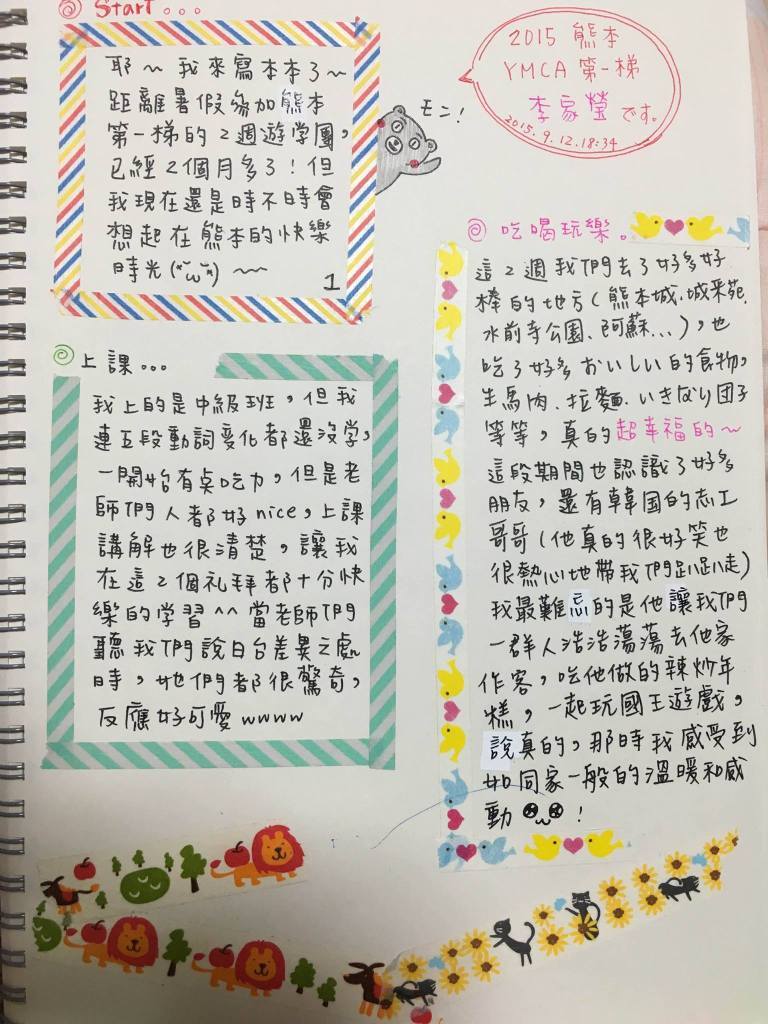 Start...
耶～我來寫本本了～
距離暑假參加熊本
第一梯的2週遊学團，
已經2個月多了！但
我現在還是時不時會
想起在熊本的快樂
時光(*˘ω˘*)～～
1
モン！
2015 熊本
YMCA 第一梯
李家瑩です。
2015.9.12.18:34
上課...
我上的是中級班，但我
連五段動詞变化都還沒学，
一開始有桌吃力，但是老
師們人都好nice，上課
講解也很清楚，讓我
在這2個礼拜都十分快
樂的学習^^當老師們
聽我們說日台差異之處
時，她們都很驚奇，
反應好可愛wwww
吃喝玩樂。
這2週我們去了好多好
棒的地方(熊本城、城彩苑、
水前寺公園、阿蘇...)，也
吃了好多おいしい的食物，
生馬肉、拉麵、いきなり团子
等等，真的超幸福的～
這段期間也認識了好多
朋友，還有韓国的志工
哥哥(他真的很好笑也
很熱心地帶我們趴趴走)
我最難忘的是他讓我們
一群人浩浩蕩蕩去他家
作客，吃他做的辣炒年
糕，一起玩國王遊戲，
說真的，那時我感受到
如同家一般的溫暖和感
動！